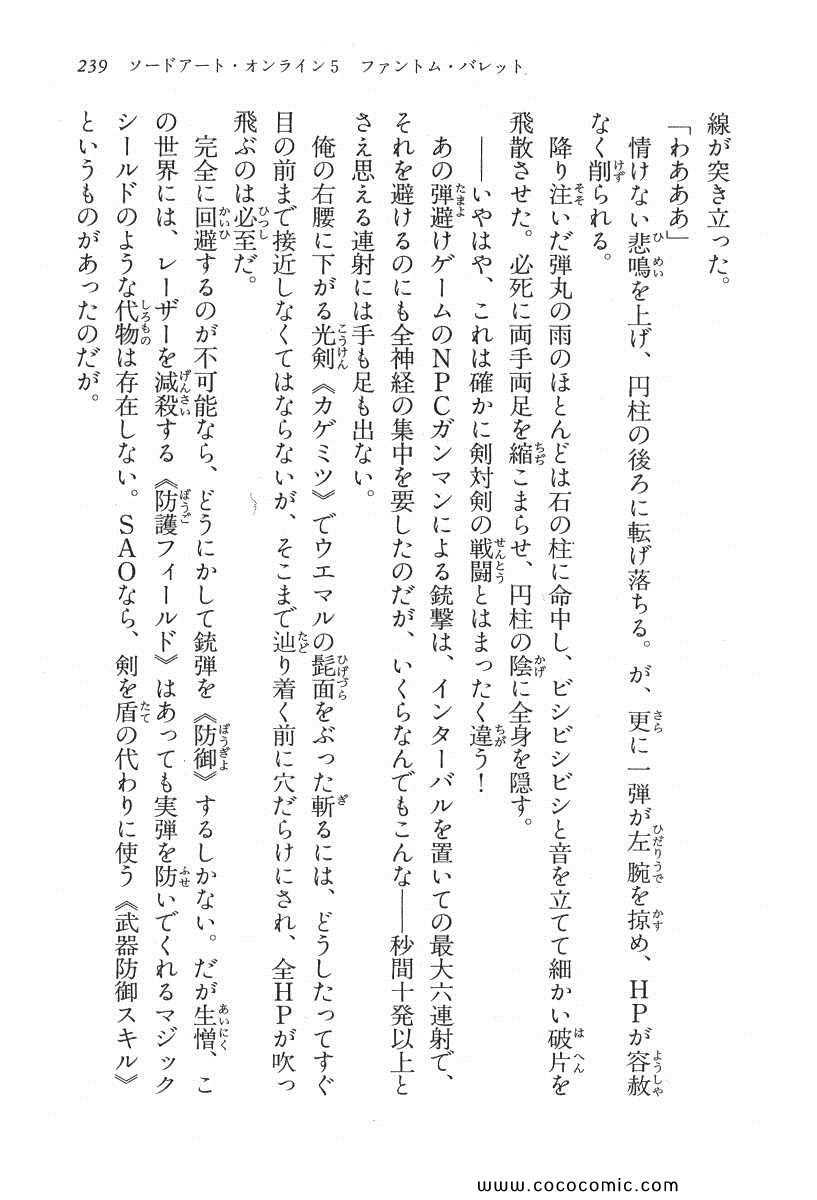 239　ソードアート・オンライン5　ファントム・バレット
線が突き立った。
「わあああ」
情けない悲鳴を上げ、円柱の後ろに転げ落ちる。が、更に一弾が左腕を掠め、HPが容赦
なく削られる。
降り注いだ弾丸の雨のほとんどは石の柱に命中し、ビシビシビシと音を立てて細かい破片を
飛散させた。必死に両手両足を縮こまらせ、円柱の陰に全身を隠す。
――いやはや、これは確かに剣対剣の戦闘とはまったく違う！
あの弾避けゲームのNPCガンマンによる銃撃は、インターバルを置いての最大六連射で、
それを避けるのにも全神経の集中を要したのだが、いくらなんでもこんな――秒間十発以上と
さえ思える連射には手も足も出ない。
俺の右腰に下がる光剣《カゲミツ》でウエマルの髭面をぶった斬るには、どうしたってすぐ
目の前まで接近しなくてはならないが、そこまで辿り着く前に穴だらけにされ、全HPが吹っ
飛ぶのは必至だ。
完全に回避するのが不可能なら、どうにかして銃弾を《防御》するしかない。だが生憎、こ
の世界には、レーザーを減殺する《防護フィールド》はあっても実弾を防いでくれるマジック
シールドのような代物は存在しない。SAOなら、剣を盾の代わりに使う《武器防御スキル》
というものがあったのだが。
www.cococomic.com